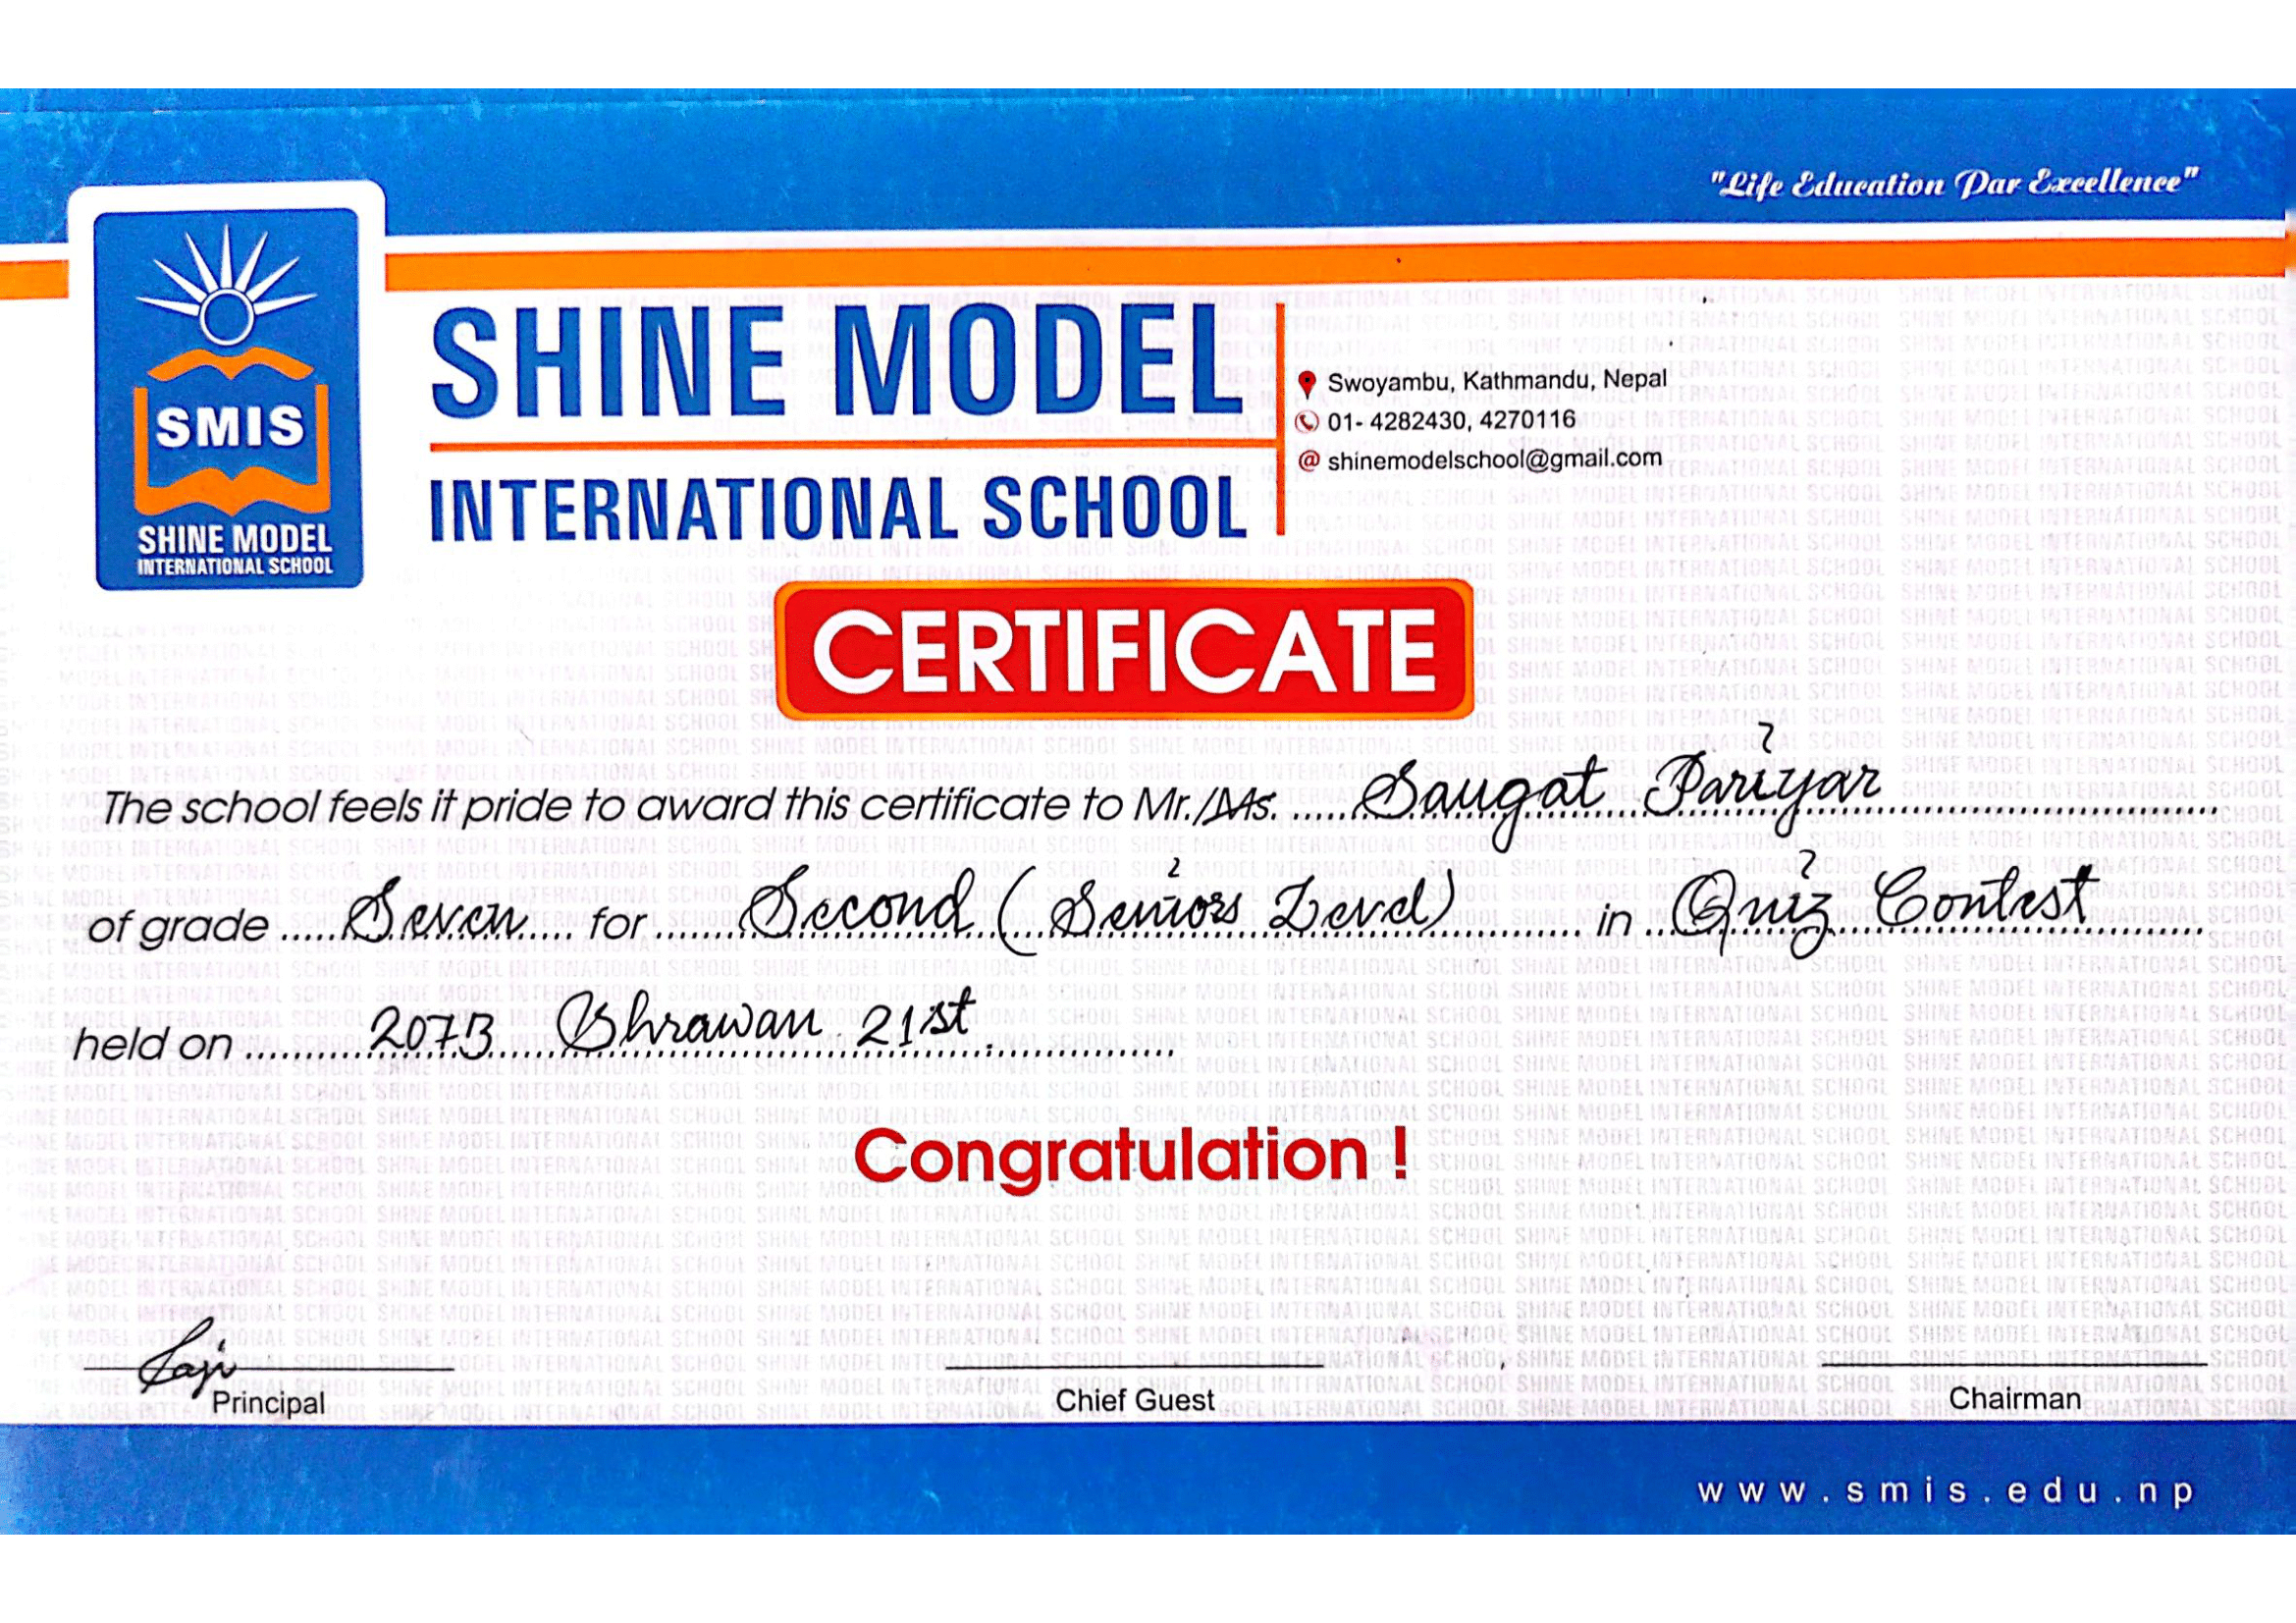 "Life Education Par Excellence"
SMIS
SHINE MODEL
INTERNATIONAL SCHOOL
SHINE MODEL
INTERNATIONAL SCHOOL
Swoyambu, Kathmandu, Nepal
01- 4282430, 4270116
@ shinemodelschool@gmail.com
CERTIFICATE
The school feels it pride to award this certificate to Mr./Ms. Saugat Pariyar
of grade Seven for Second (Seniors Level) in Quiz Contest
held on 2073 Shrawan 21st
Congratulation !
Principal
Chief Guest
Chairman
www.smis.edu.np